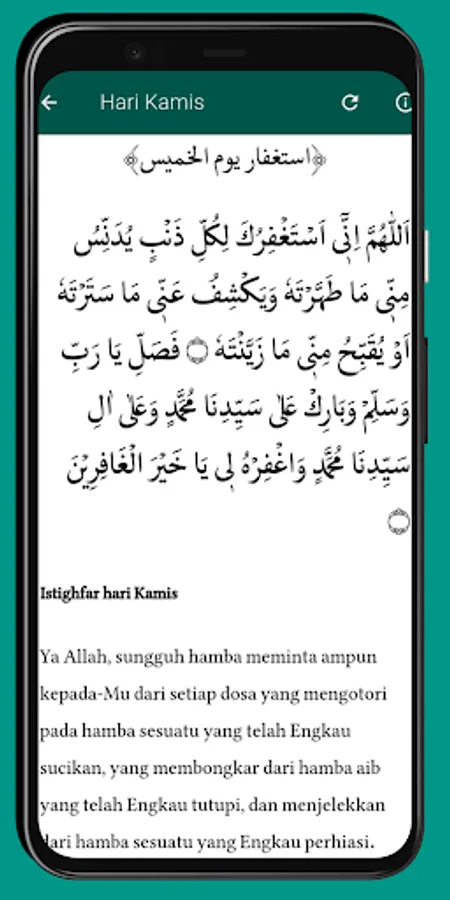 Hari Kamis
﴿استغفار يوم الخميس﴾
اَللّٰهُمَّ اِنِّيْ اَسْتَغْفِرُكَ لِكُلِّ ذَنْبٍ يُدَنِّسُ
مِنِّيْ مَا طَهَّرْتَهٗ وَيَكْشِفُ عَنِّيْ مَا سَتَرْتَهٗ
اَوْ يُقَبِّحُ مِنِّيْ مَا زَيَّنْتَهٗ ۝ فَصَلِّ يَا رَبِّ
وَسَلِّمْ وَبَارِكْ عَلٰى سَيِّدِنَا مُحَمَّدٍ وَعَلٰى اٰلِ
سَيِّدِنَا مُحَمَّدٍ وَاغْفِرْهُ لِيْ يَا خَيْرَ الْغَافِرِيْنَ
۝
Istighfar hari Kamis
Ya Allah, sungguh hamba meminta ampun
kepada-Mu dari setiap dosa yang mengotori
pada hamba sesuatu yang telah Engkau
sucikan, yang membongkar dari hamba aib
yang telah Engkau tutupi, dan menjelekkan
dari hamba sesuatu yang Engkau perhiasi.